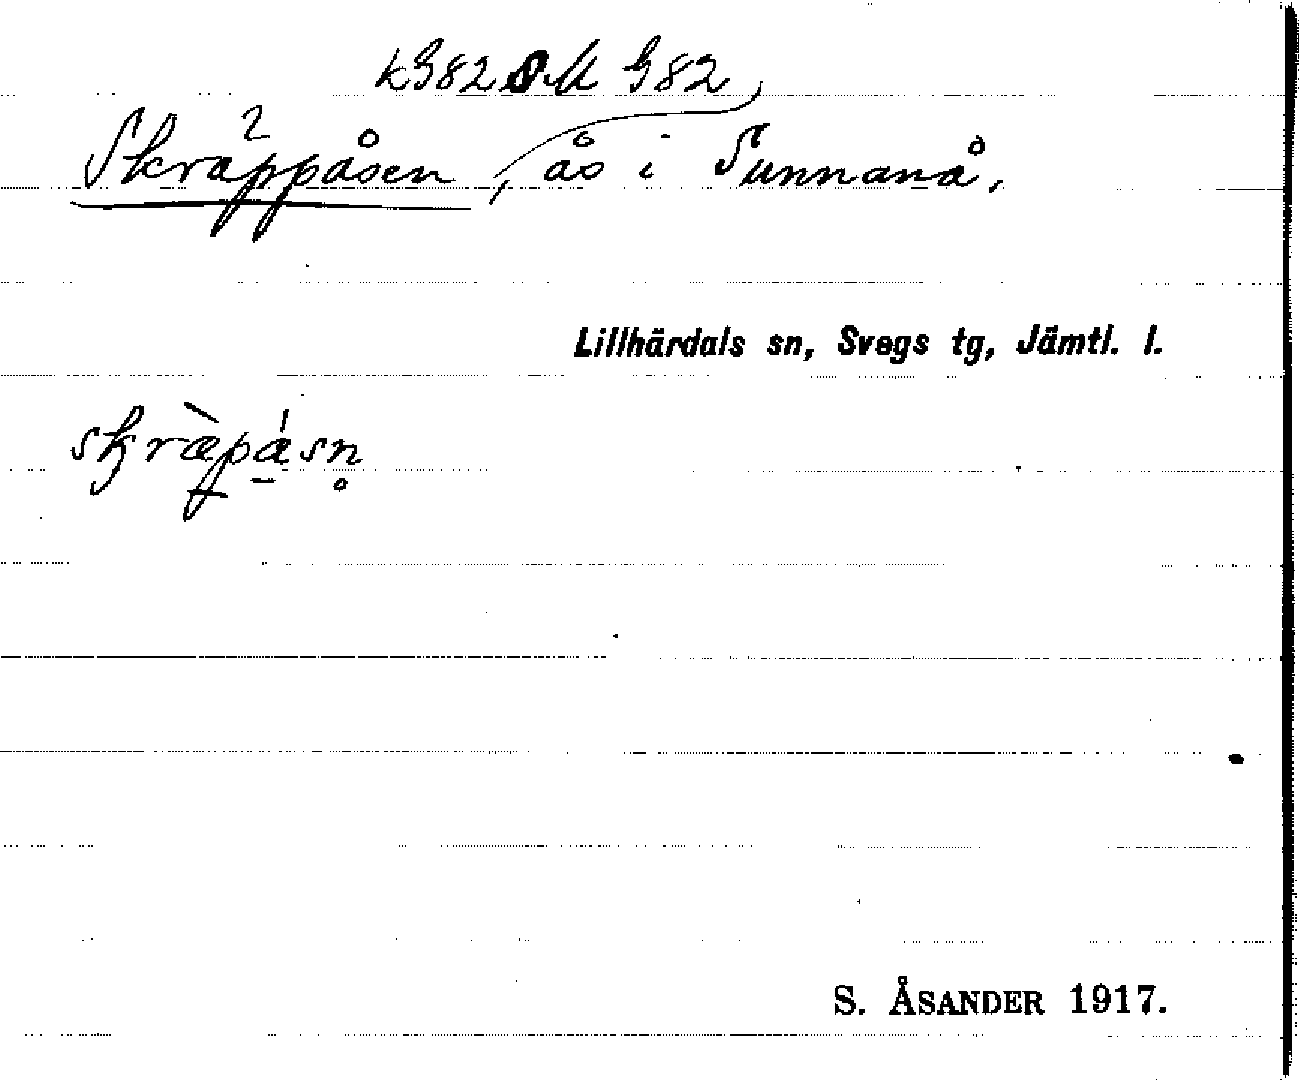 Skräppåsen, ås i Sunnanå,
Lillhärdals sn, Svegs tg, Jämtl. l.
skræpa̱sn̥
S. ÅSANDER 1917.